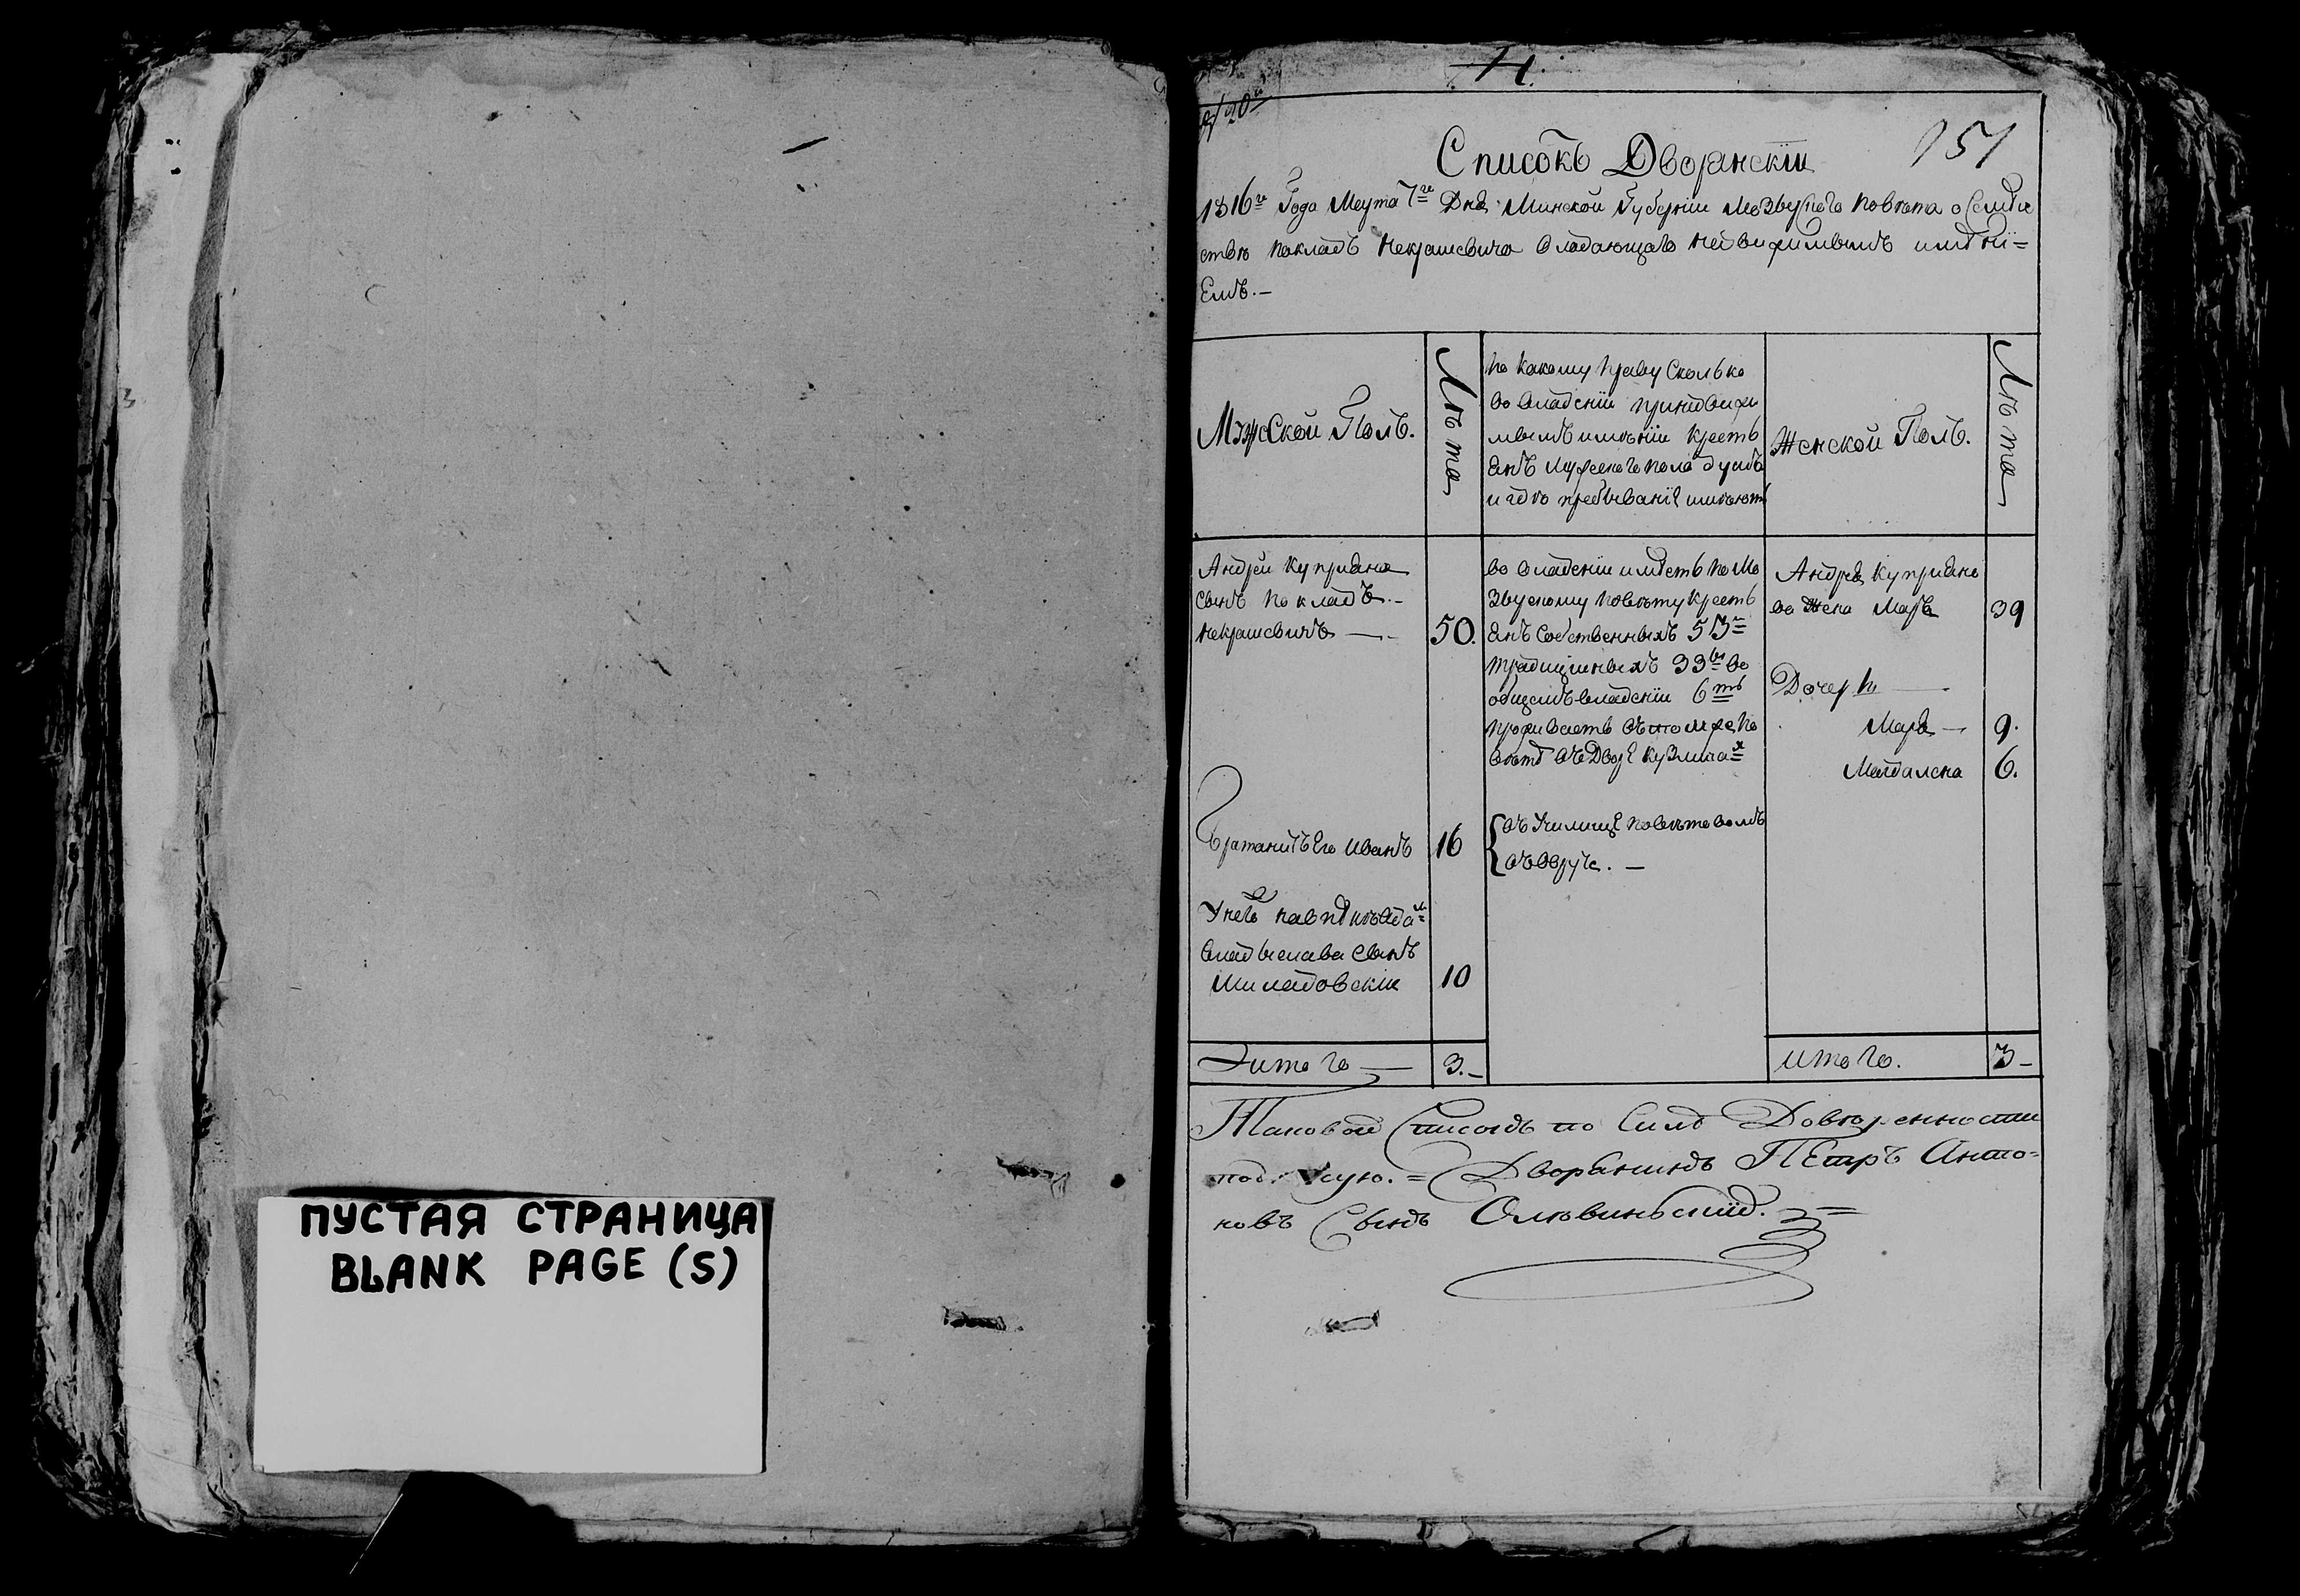 ПУСТАЯ СТРАНИЦА
BLANK PAGE (S)
151
Списокъ Дворянскій
1816го Года Марта 7го Дня Минской Губерніи Мозырского повѣта о Семѣй
ствѣ покладъ Некрашевича владающаго недвижимымъ имѣні=
Емъ.-
Мужской Полъ.
Лѣта
по какому праву сколько
во владеніи при недвижи
мымъ имѣніи кресть
янъ мужеского пола душъ
и гдѣ пребываніе имѣютъ
Женской Полъ.
Лѣта
Андрей Куприяна
сынъ покладъ.-
Некрашевичъ — 50.
во владеніи имѣетъ по Мо
зырскому повѣту кресть
янъ собственныхъ 53
традиційныхъ 33 во
общемъ владеніи 6ть
проживаетъ въ томже по
вѣтѣ въ Дворѣ Кузмича
Андрея Куприяно
ва жена Маря 39
Дочери —
Маря — 9.
Магдалена 6.
Братаничъ Его Иванъ 16
въ Училищѣ повѣтовомъ
въ Овруче. —
у него
Владыслава сынъ
Шиладовскій 10
Итого — 3.-
Итого. 3-
Таковой Списокъ по Силѣ Довѣренности
подписую. = Дворянинъ Пётръ Анто-
новъ Сынъ